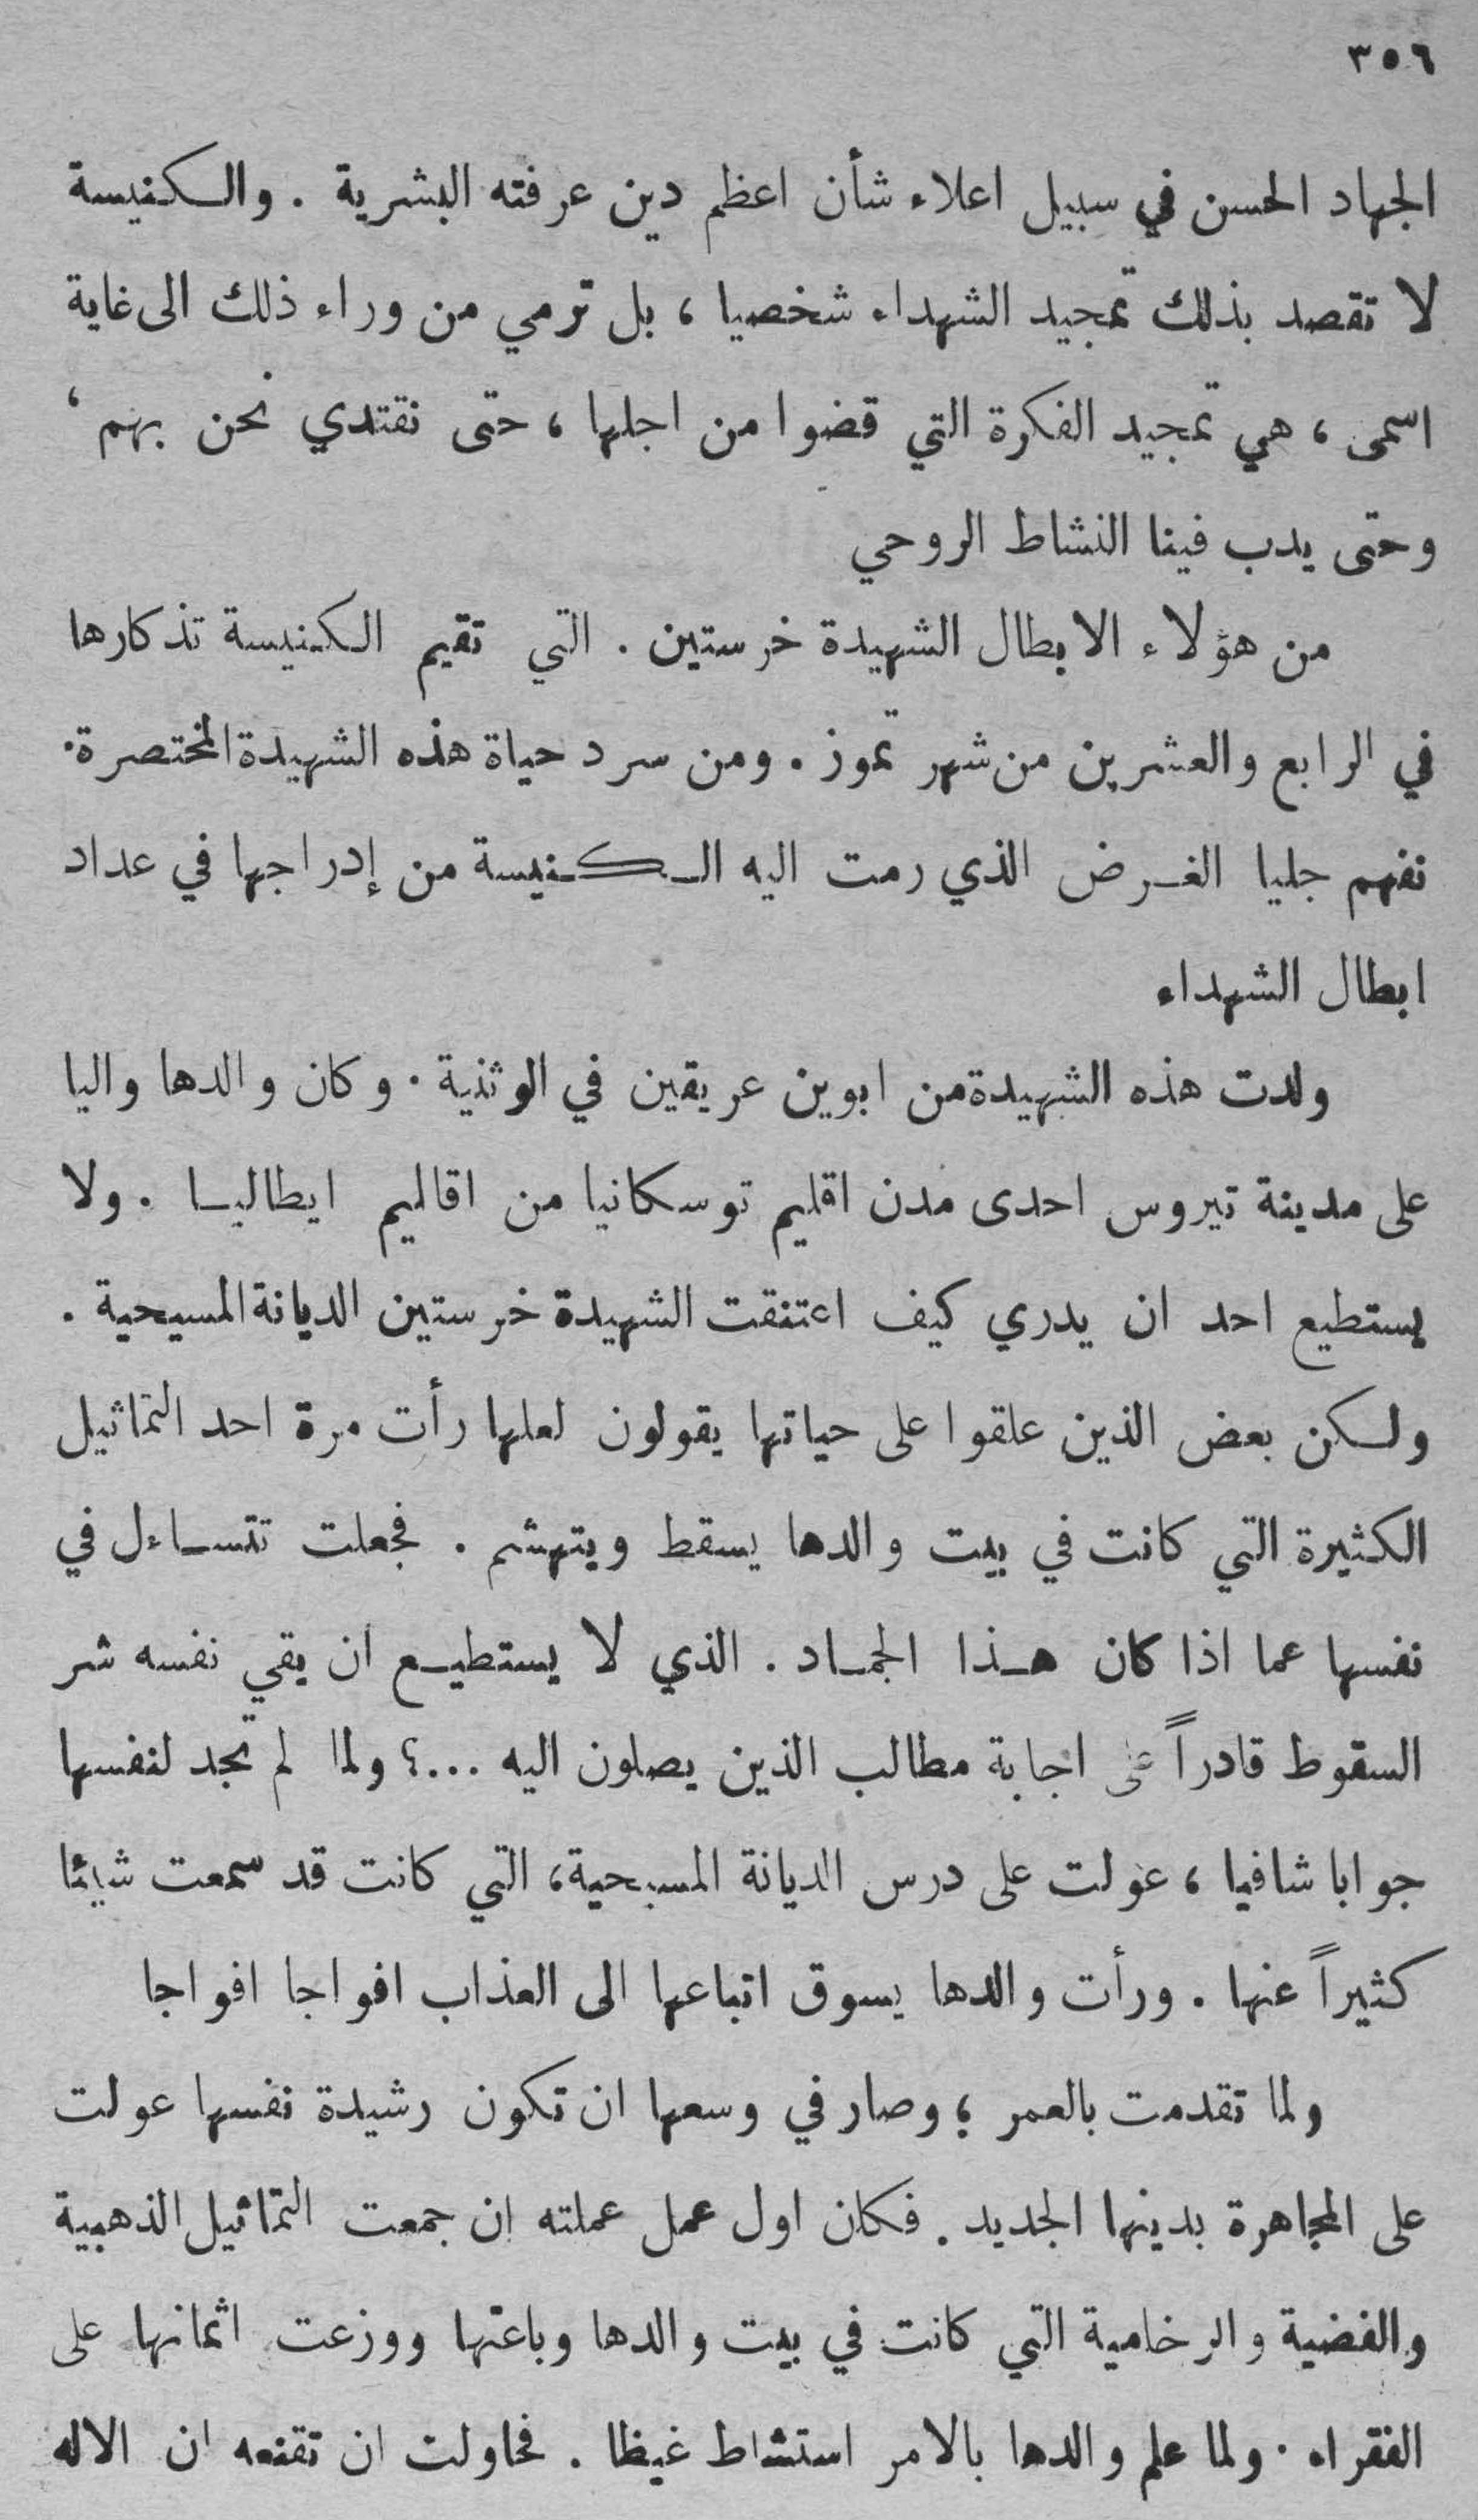 ٣٥٦
الجهاد الحسن في سبيل اعلاء شأن اعظم دين عرفته البشرية . والكنيسة
لا تقصد بذلك تمجيد الشهداء شخصيا ، بل ترمي من وراء ذلك الى غاية
اسمى ، هي تمجيد الفكرة التي قضوا من اجلها ، حتى نقتدي نحن بهم ،
وحتى يدب فينا النشاط الروحي
من هؤلاء الابطال الشهيدة خرستين . التي تقيم الكنيسة تذكارها
في الرابع والعشرين من شهر تموز . ومن سرد حياة هذه الشهيدة المختصرة .
نفهم جليا الغرض الذي رمت اليه الكنيسة من إدراجها في عداد
ابطال الشهداء
ولدت هذه الشهيدة من ابوين عريقين في الوثنية . وكان والدها واليا
على مدينة تيروس احدى مدن اقليم توسكانيا من اقاليم ايطاليا . ولا
يستطيع احد ان يدري كيف اعتنقت الشهيدة خرستين الديانة المسيحية .
ولكن بعض الذين علقوا على حياتها يقولون لعلها رأت مرة احد التماثيل
الكثيرة التي كانت في بيت والدها يسقط ويتهشم . فجعلت تتساءل في
نفسها عما اذا كان هذا الجماد . الذي لا يستطيع ان يقي نفسه شر
السقوط قادراً على اجابة مطالب الذين يصلون اليه ...؟ ولما لم تجد لنفسها
جوابا شافيا ، عولت على درس الديانة المسيحية ، التي كانت قد سمعت شيئا
كثيراً عنها . ورأت والدها يسوق اتباعها الى العذاب افواجا افواجا
ولما تقدمت بالعمر ؛ وصار في وسعها ان تكون رشيدة نفسها عولت
على المجاهرة بدينها الجديد . فكان اول عمل عملته ان جمعت التماثيل الذهبية
والفضية والرخامية التي كانت في بيت والدها وباعتها ووزعت اثمانها على
الفقراء . ولما علم والدها بالامر استشاط غيظا . فحاولت ان تقنعه ان الاله